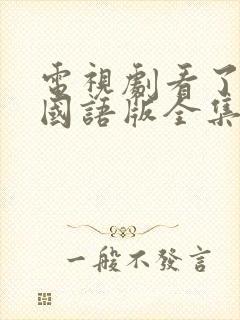 電視劇看了
國語版全集
一般不發言